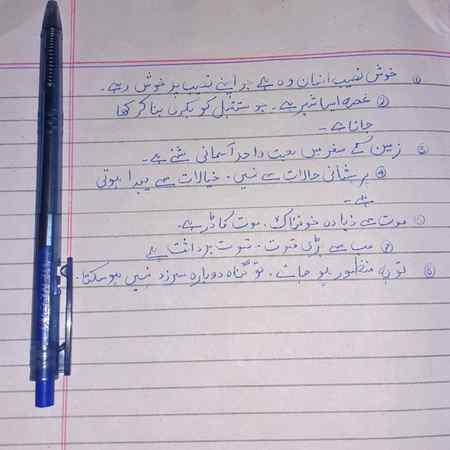 ① خوش نصیب انسان وہ ہے جو اپنے نصیب پر خوش رہے۔
② غصہ ایسا شیر ہے۔ جو مستقبل کو بکری بنا کر کھا
جاتا ہے۔
③ زمین کے سفر میں محبت واحد آسمانی شئے ہے۔
④ پریشانی حالات سے نہیں۔ خیالات سے پیدا ہوتی
ہے۔
⑤ موت سے زیادہ خوفناک۔ موت کا ڈر ہے۔
سب سے بڑی قوت۔ قوت برداشت ہے
توبہ منظور ہو جائے۔ تو گناہ دوبارہ سرزد نہیں ہو سکتا۔